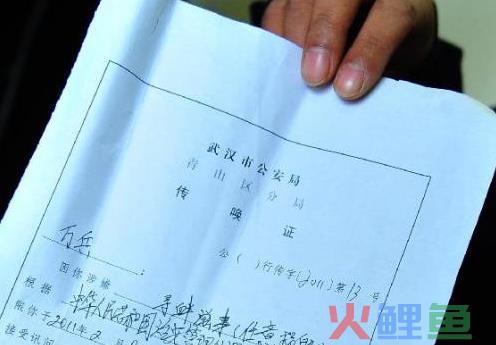 武汉市公安局
青山区分局
传唤证
公( )行传字(2011)第13号
万兵:
因你涉嫌 寻衅滋事(任意
根据 中华人民共和国治安管理
限你于2011年2月
接受讯问
火鲤鱼